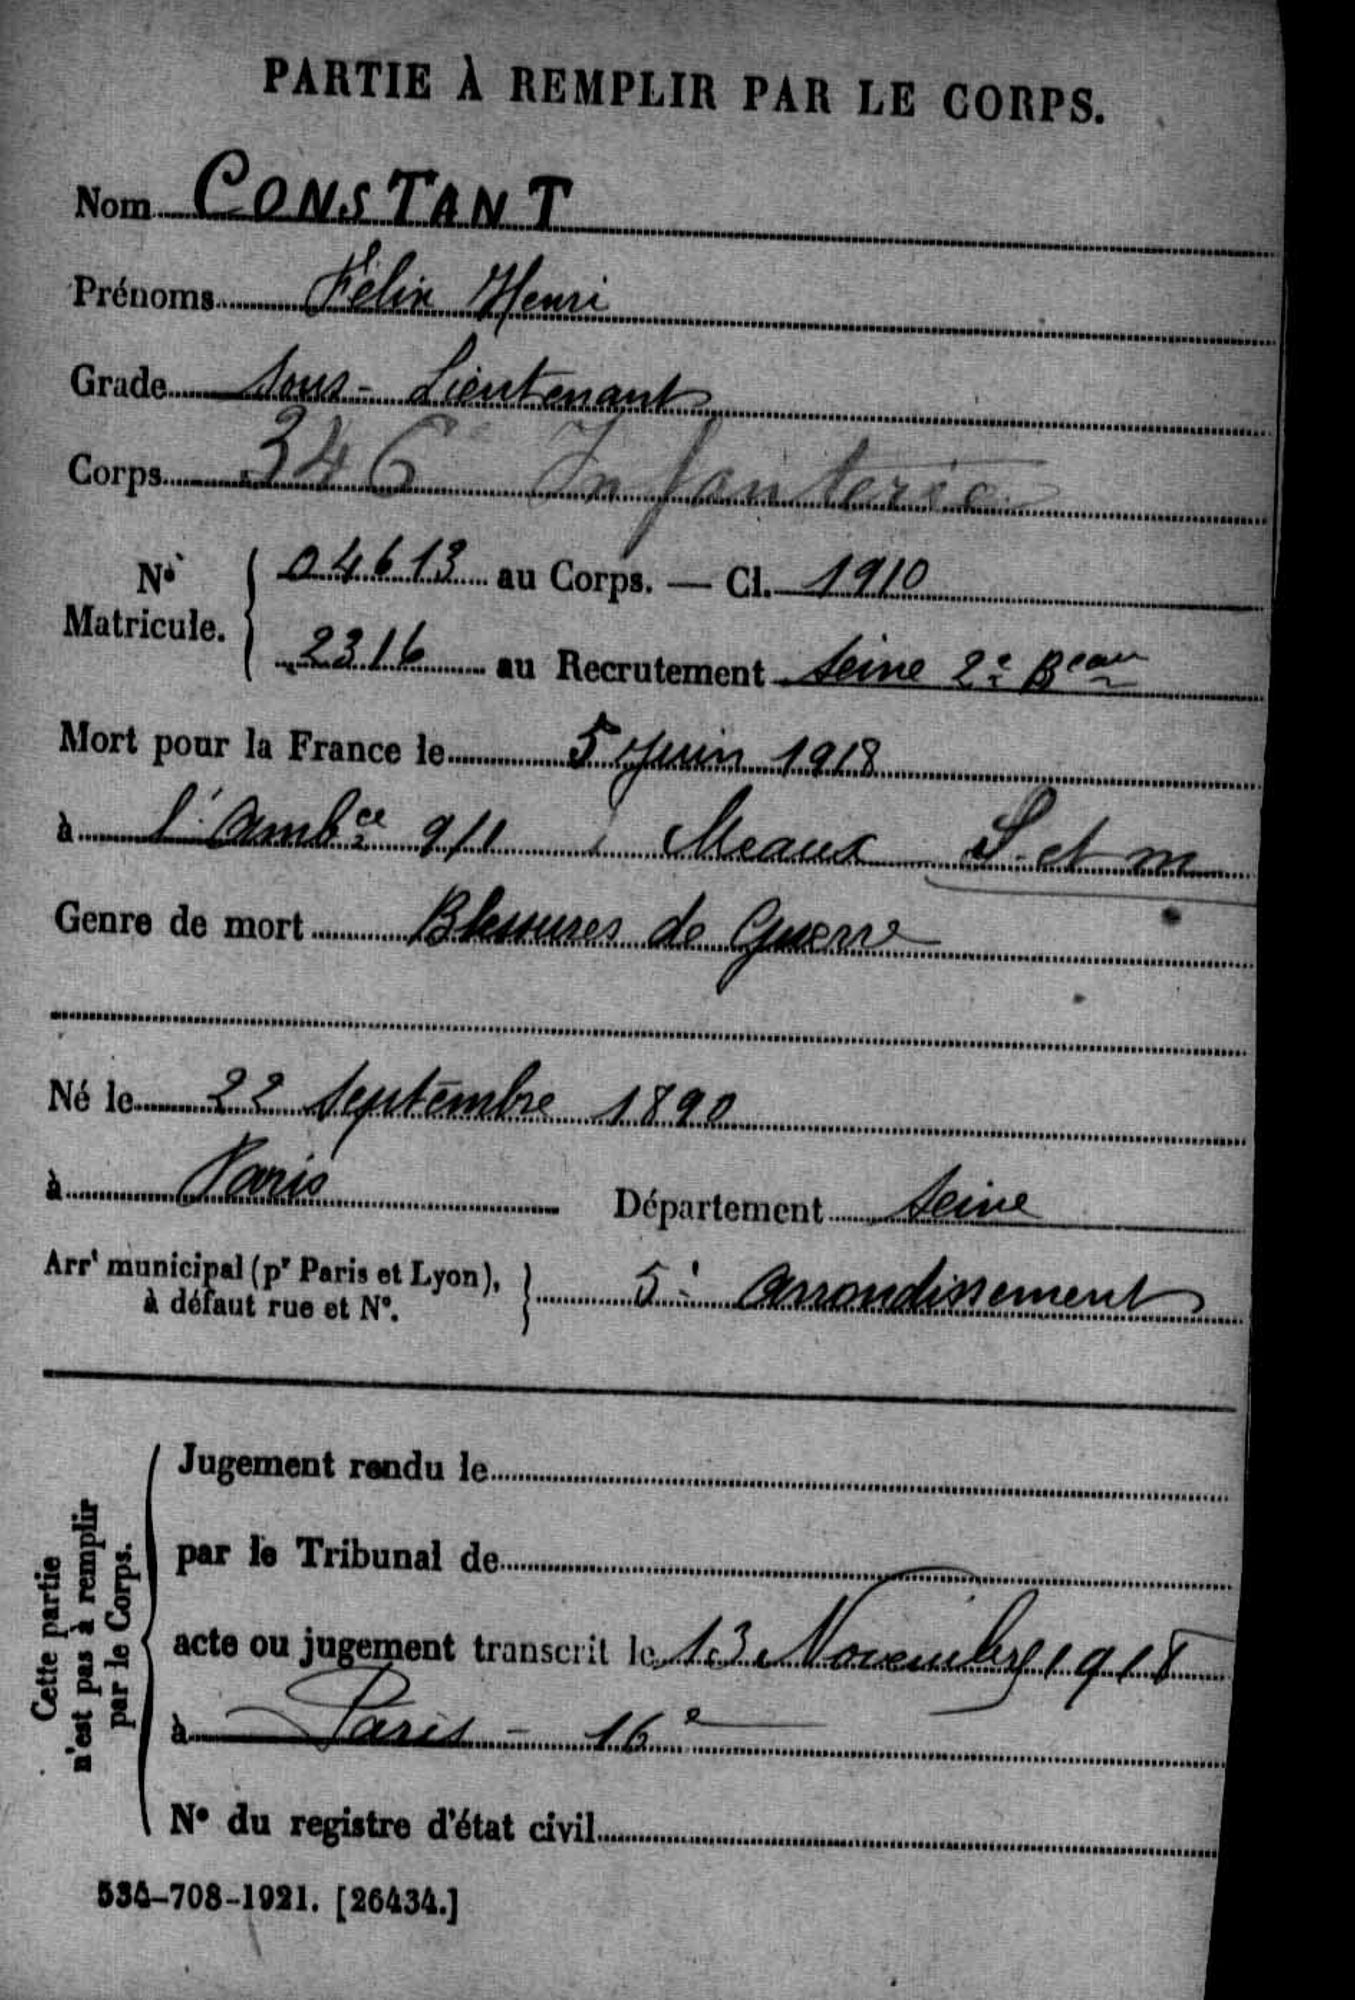 PARTIE À REMPLIR PAR LE CORPS.
Nom CONSTANT
Prénoms Félix Henri
Grade Sous-Lieutenant
Corps 346e Infanterie
No Matricule. { 04613 au Corps. — Cl. 1910
2316 au Recrutement Seine 2e Beau
Mort pour la France le 5 Juin 1918
à l'Ambce 9/1 Meaux S. et M
Genre de mort Blessures de Guerre
Né le 22 Septembre 1890
à Paris Département Seine
Arrt municipal (pr Paris et Lyon), à défaut rue et No. } 5e Arrondissement
Cette partie n'est pas à remplir par le Corps.
Jugement rendu le
par le Tribunal de
acte ou jugement transcrit le 13 Novembre 1918
à Paris - 16e
No du registre d'état civil
534-708-1921. [26434.]